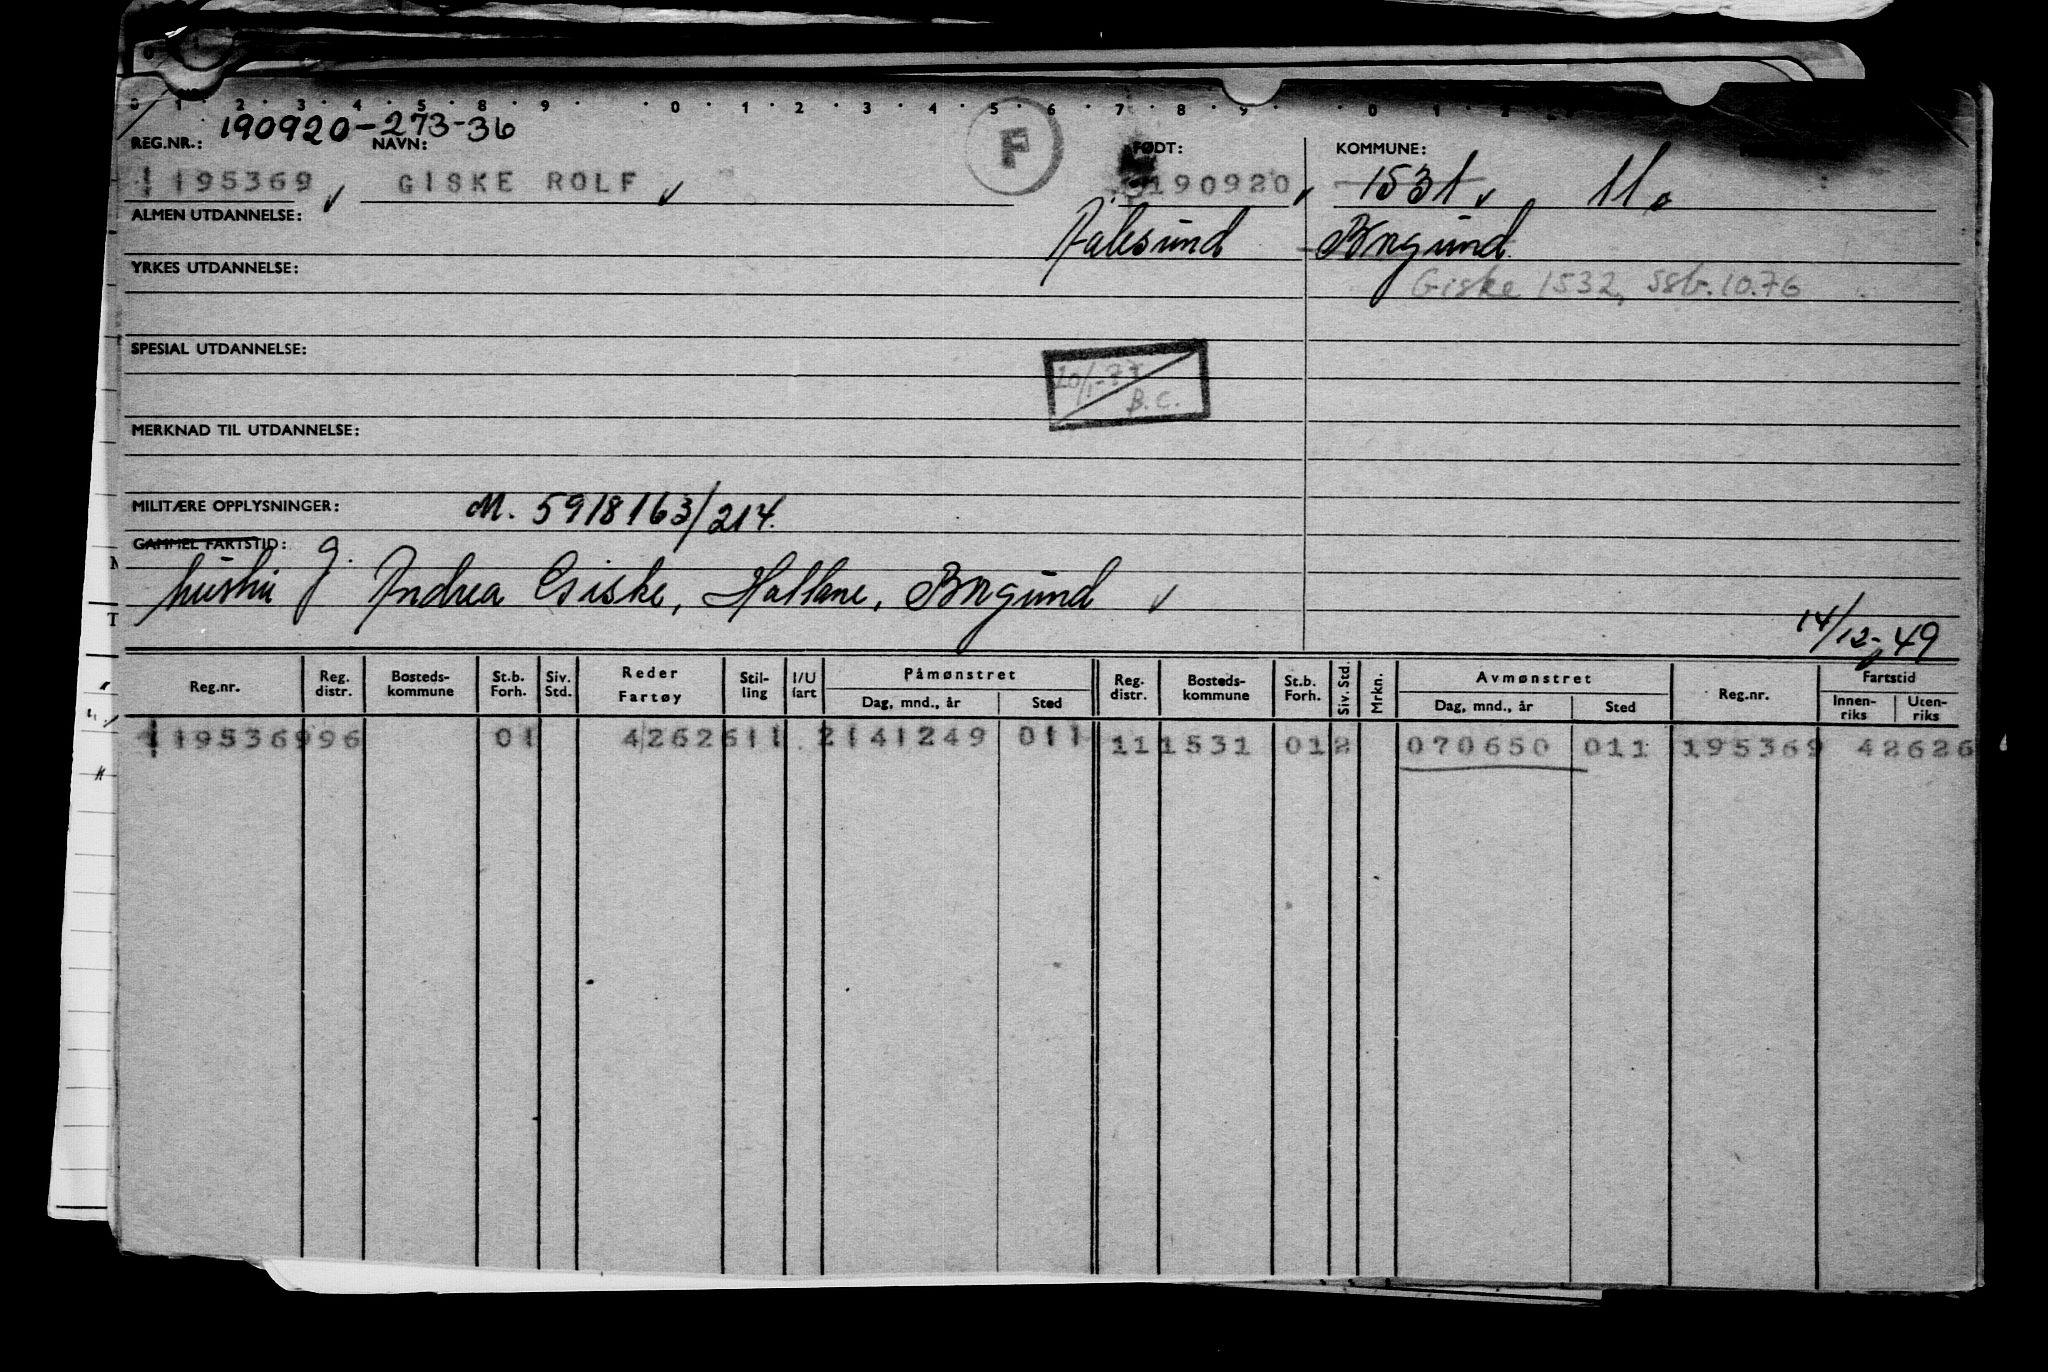 0 · 1 · 2 · 3 · 4 · 5 · 8 · 9 · · 0 · 1 · 2 · 3 · 4 · 5 · 6 · 7 · 8 · 9 · · 0 · 1 · 2
190920-273-36
REG.NR.: NAVN: F FØDT: KOMMUNE:
195369 GISKE ROLF 190920 1531 11
ALMEN UTDANNELSE:
Aalesund Borgund
YRKES UTDANNELSE:
Giske 1532, SSb. 10.76
SPESIAL UTDANNELSE:
20/1-77
B.C.
MERKNAD TIL UTDANNELSE:
MILITÆRE OPPLYSNINGER: M. 5918163/214.
GAMMEL FARTSTID:
hustru J. Andrea Giske, Hallane, Borgund
14/12-49
Reg.nr. Reg. distr. Bosteds-kommune St.b. Forh. Siv. Std. Reder Fartøy Stil-ling I/U fart Påmønstret Dag, mnd., år Sted Reg. distr. Bosteds-kommune St.b. Forh. Siv. Std. Mrkn. Avmønstret Dag, mnd., år Sted Reg.nr. Fartstid Innen-riks Uten-riks
19536996 01 4262611 2141249 011 111531 012 070650 011 195369 42626